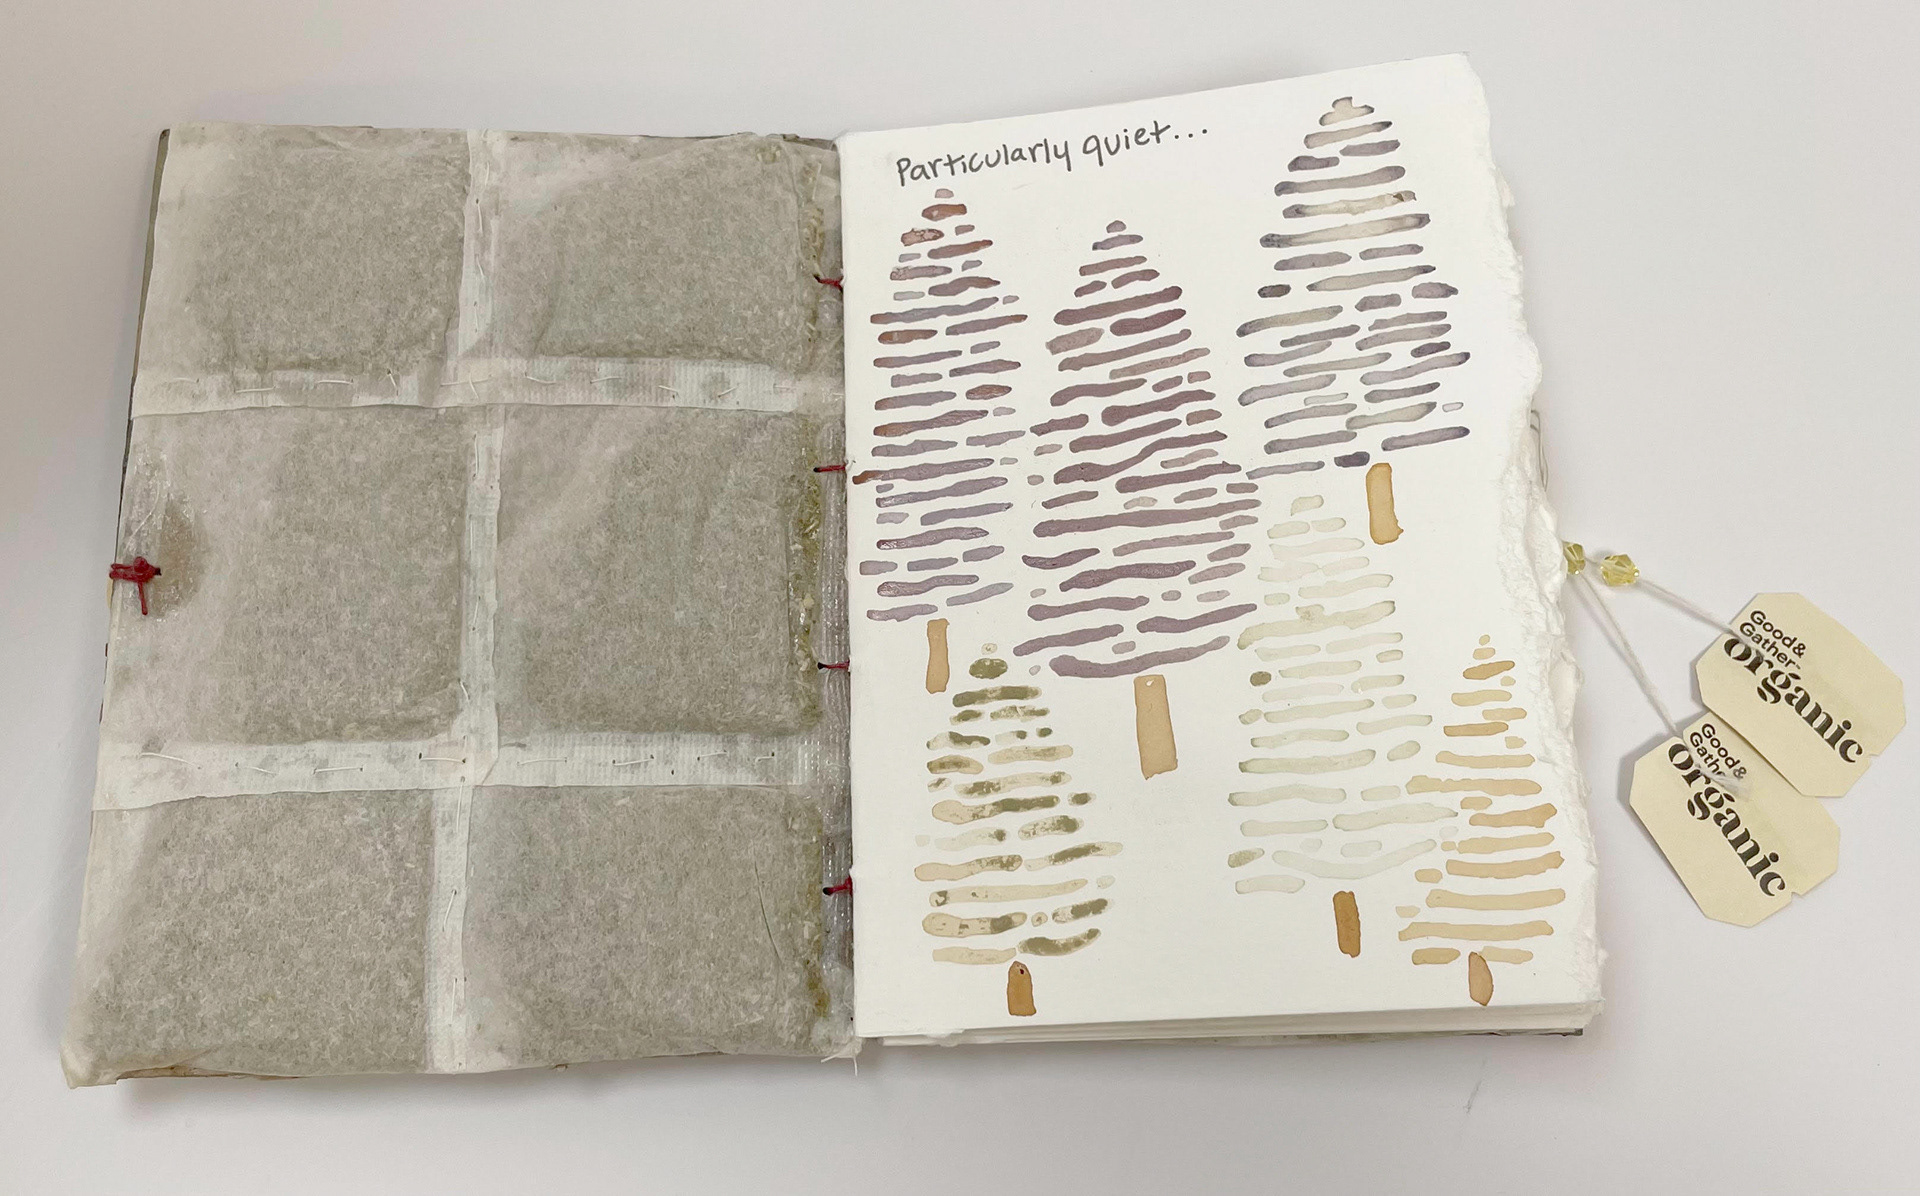 Particularly quiet...
Good&
Gather™
organic
Good&
Gather
organic